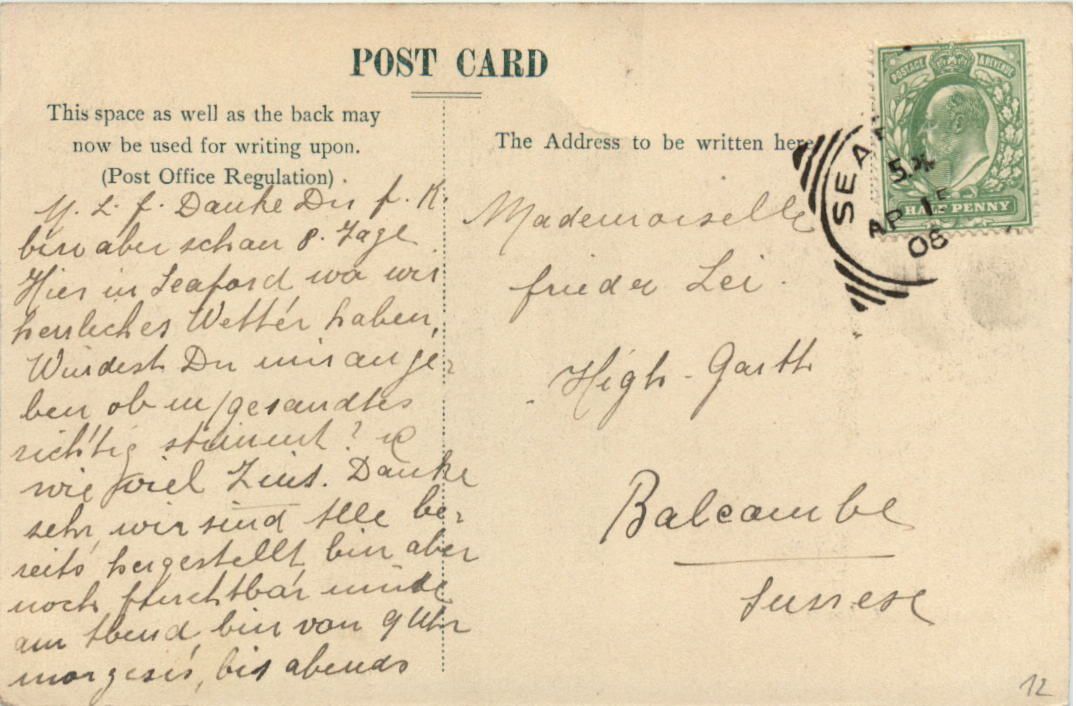 POST CARD
This space as well as the back may
now be used for writing upon.
(Post Office Regulation).
The Address to be written here
POSTAGE & REVENUE
HALF PENNY
SEAF
5. PM
AP 15
08
M. L. f. Danke Dir f. K.
bin aber schon 8. Tage
Hier in Seaford wo wir
herrliches Wetter haben,
Würdest Du mir ange-
ben ob gesandtes
richtig stimmt? u
wie viel Zeit. Danke
sehr, wir sind Alle be-
reits hergestellt, bin aber
noch furchtbar müde
am Abend, bin von 9 Uhr
morgens, bis abends
Mademoiselle
frieda Lei.
High-Garth
Balcombe
Sussex
12